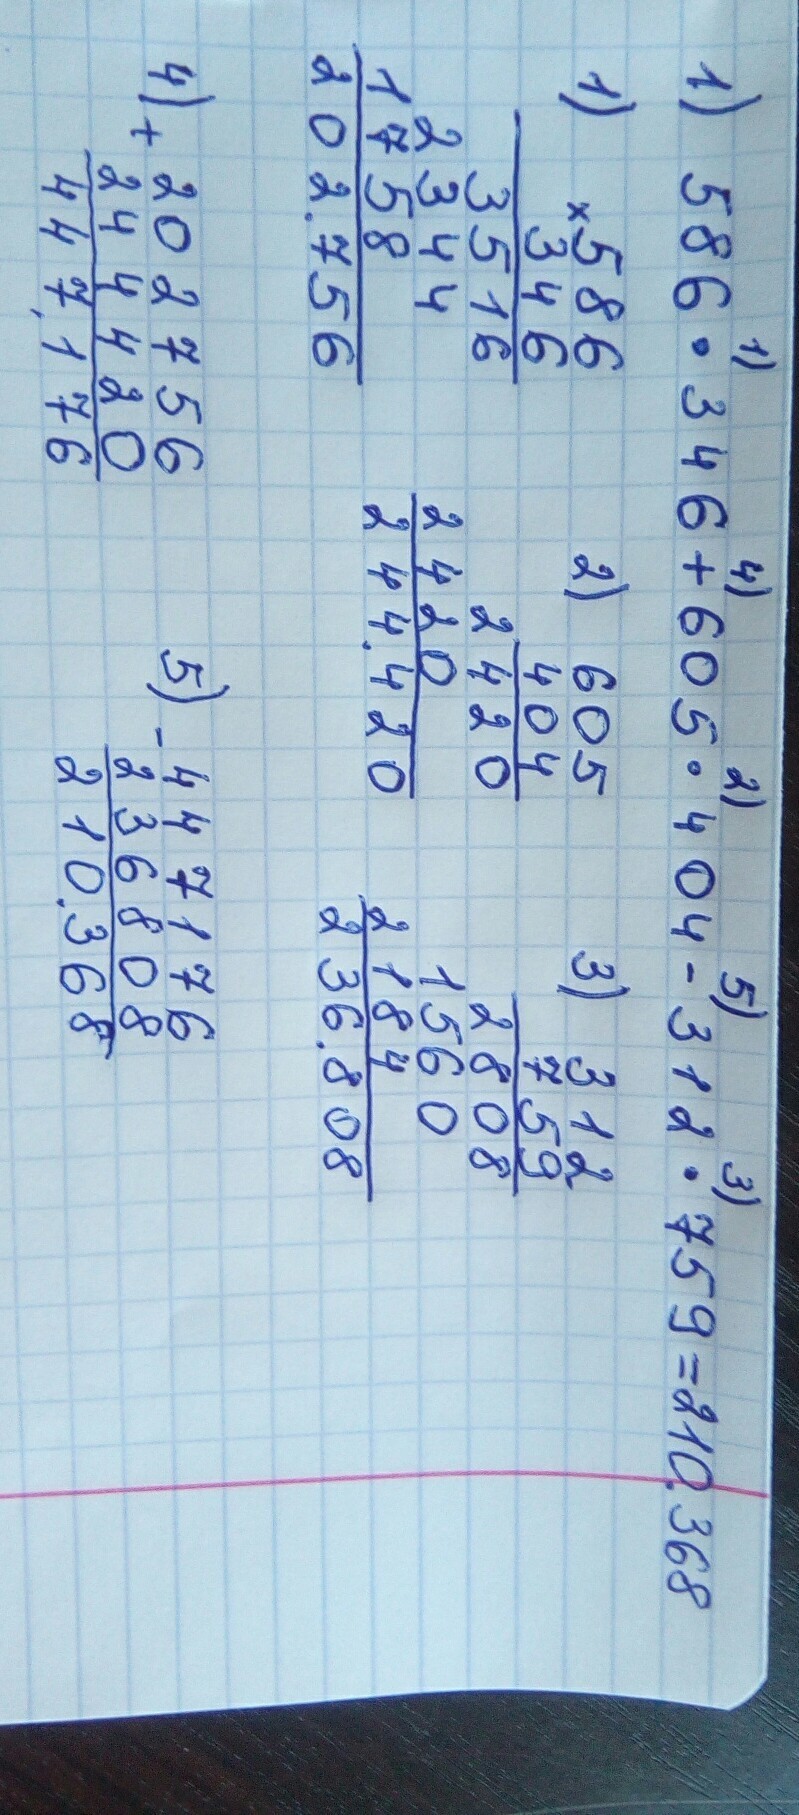 1) 586 • 346 + 605 • 404 - 312 • 759 = 210.368
1) 4) 2) 5) 3)
1) × 586
346
3516
2344
1758
202.756
2) 605
404
2420
2420
244.420
3) 312
759
2808
1560
2184
236.808
4) + 202756
244420
447.176
5) - 447176
236808
210.368